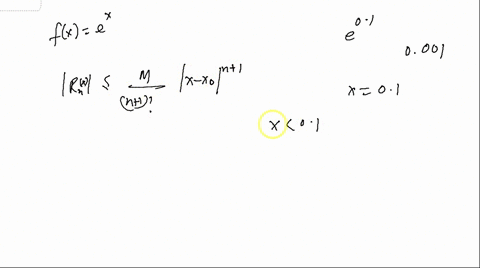 f(x) = e^x
|R_n(x)| ≤ M/(n+1)! |x-x_0|^{n+1}
e^{0.1}
0.001
x = 0.1
x < 0.1